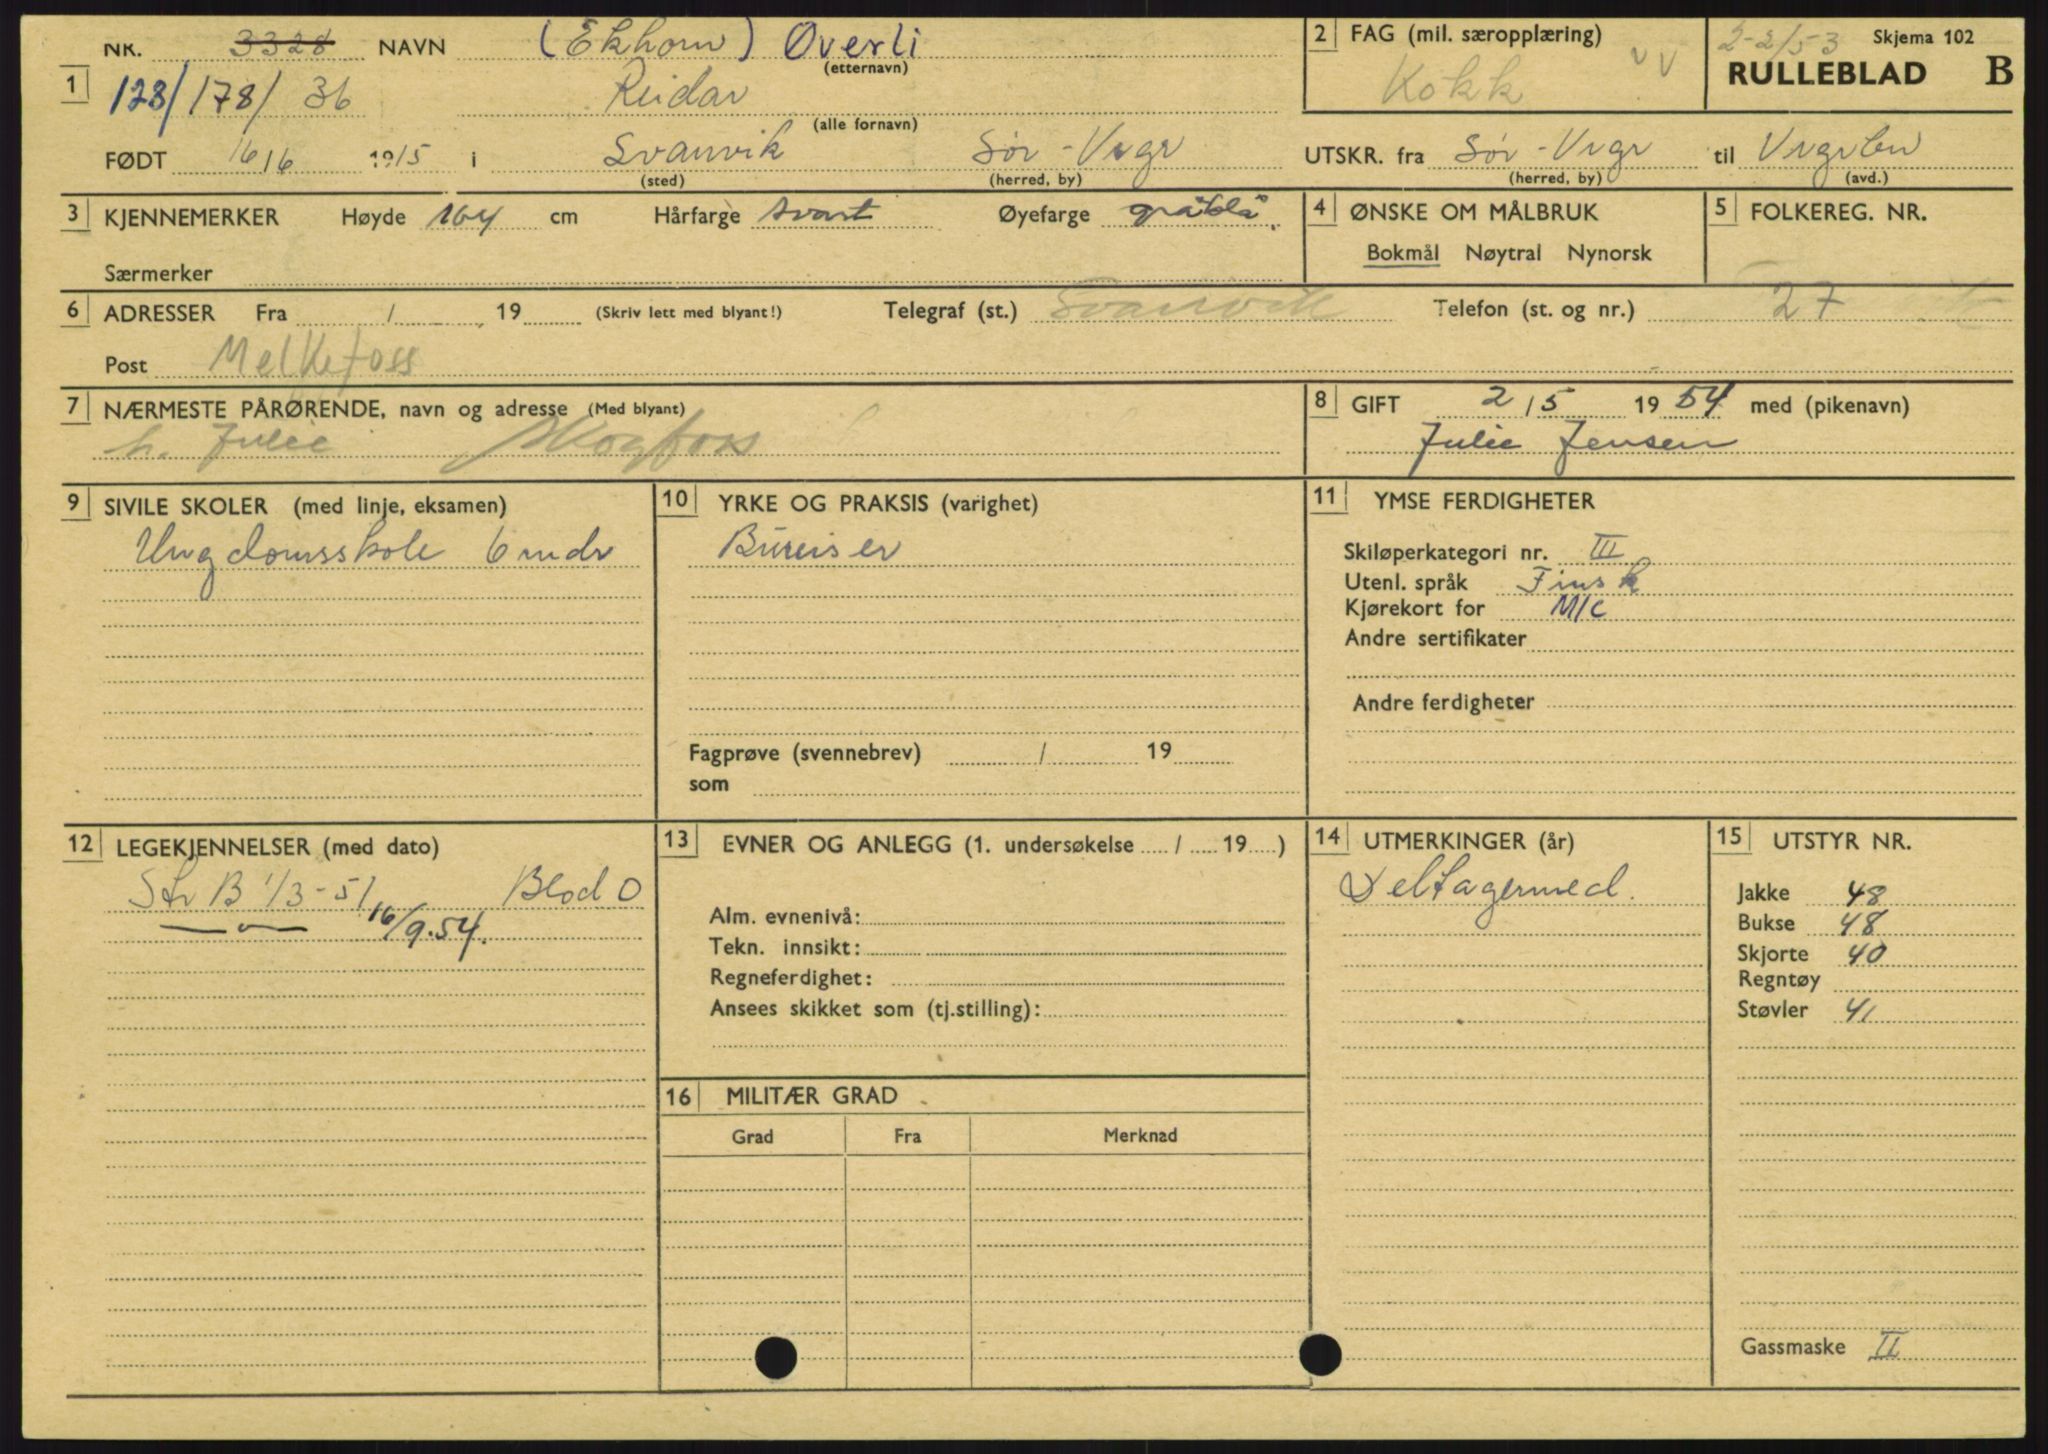 NR. 3328 NAVN (Ekhorn) Øverli
(etternavn)
1 128/178/36 Reidar
(alle fornavn)
FØDT 16/6 1915 i Svanvik Sør-Vrgr
(sted) (herred, by)
2 FAG (mil. særopplæring)
Kokk
2-2/53 Skjema 102
RULLEBLAD B
UTSKR. fra Sør-Vrgr til Vrgrbn
(herred, by) (avd.)
3 KJENNEMERKER Høyde 164 cm Hårfarge svart Øyefarge gråblå.
Særmerker
4 ØNSKE OM MÅLBRUK
Bokmål Nøytral Nynorsk
5 FOLKEREG. NR.
6 ADRESSER Fra / 19 (Skriv lett med blyant!) Telegraf (st.) Svanvik Telefon (st. og nr.) 27
Post Melkefoss
7 NÆRMESTE PÅRØRENDE, navn og adresse (Med blyant)
h. Julie Skogfoss
8 GIFT 2/5 1954 med (pikenavn)
Julie Jensen
9 SIVILE SKOLER (med linje, eksamen)
Ungdomsskole 6 mdr
10 YRKE OG PRAKSIS (varighet)
Bureiser
Fagprøve (svennebrev) / 19
som
11 YMSE FERDIGHETER
Skiløperkategori nr. III
Utenl. språk Finsk
Kjørekort for M/C
Andre sertifikater
Andre ferdigheter
12 LEGEKJENNELSER (med dato)
Str B 1/3-51 Blod O
—"— 16/9.54.
13 EVNER OG ANLEGG (1. undersøkelse / 19 )
Alm. evnenivå:
Tekn. innsikt:
Regneferdighet:
Ansees skikket som (tj.stilling):
14 UTMERKINGER (år)
Deltagermed.
15 UTSTYR NR.
Jakke 48
Bukse 48
Skjorte 40
Regntøy
Støvler 41
Gassmaske II
16 MILITÆR GRAD
Grad Fra Merknad